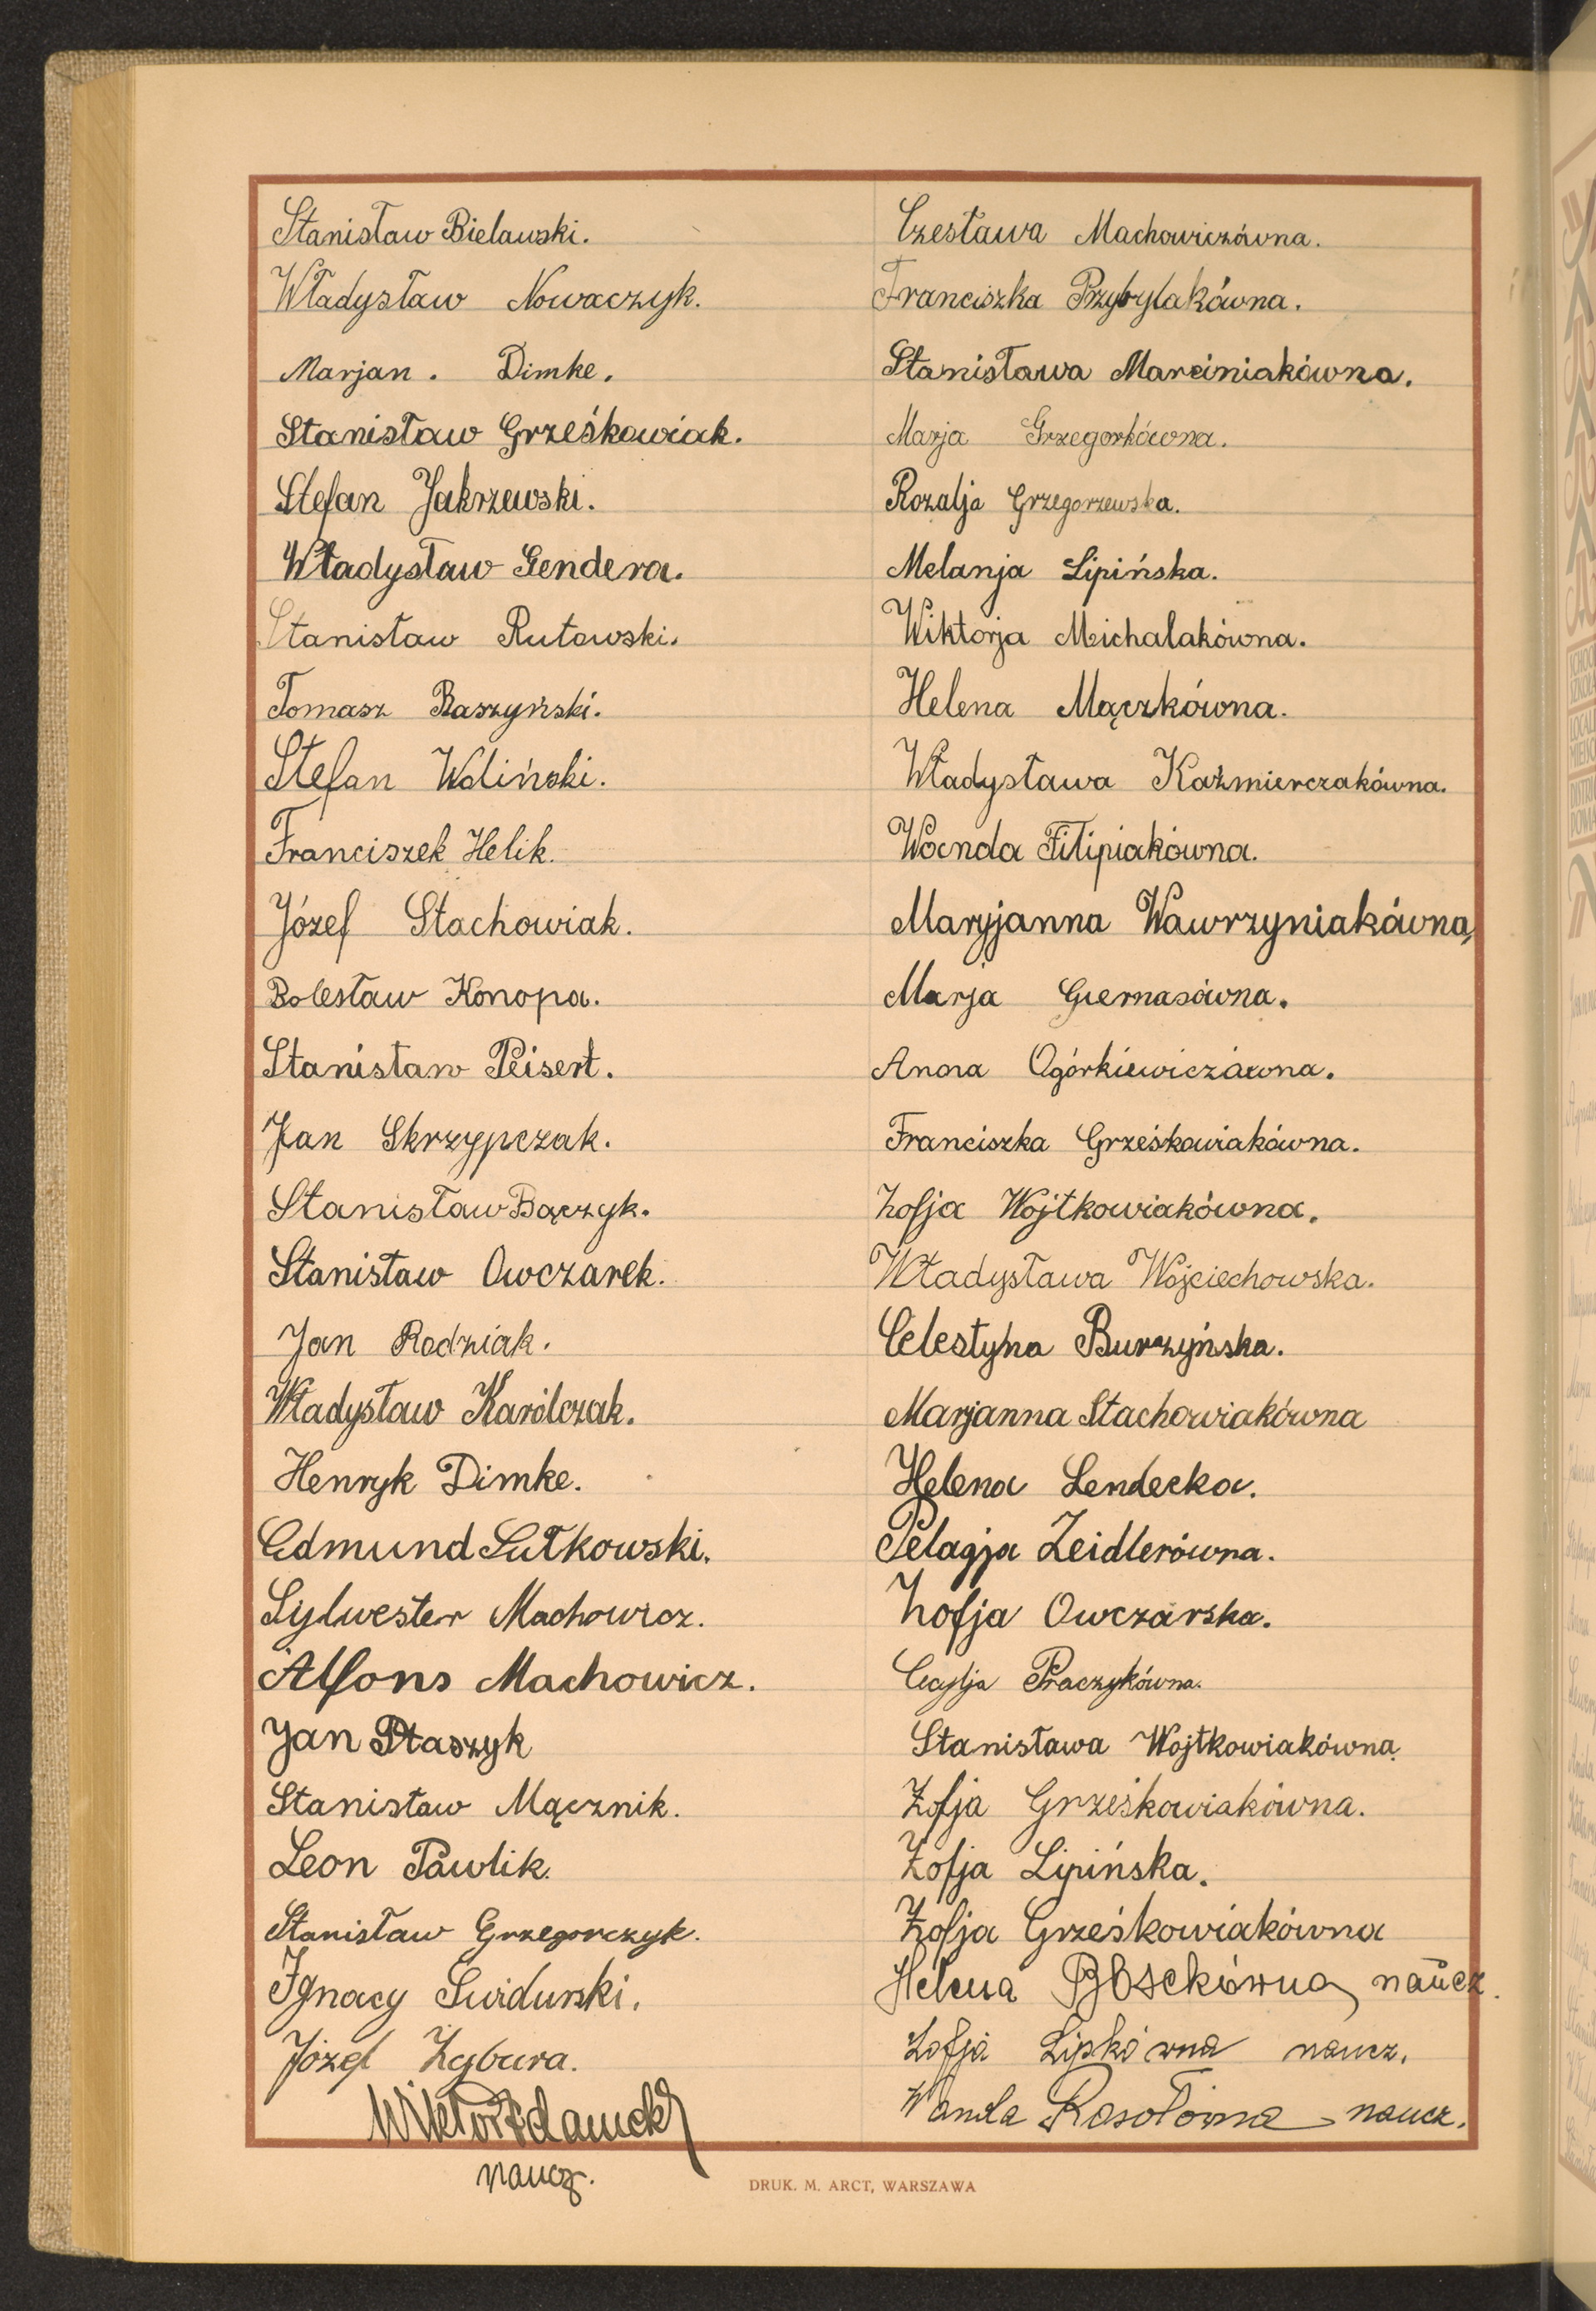 Stanisław Bielawski.
Władysław Nowaczyk.
Marjan. Dimke.
Stanisław Grześkowiak.
Stefan Jakrzewski.
Władysław Gendera.
Stanisław Rutowski.
Tomasz Raszyński.
Stefan Woliński.
Franciszek Helik.
Józef Stachowiak.
Bolesław Konopa.
Stanisław Peisert.
Jan Skrzypczak.
Stanisław Bączyk.
Stanisław Owczarek.
Jan Rodziak.
Władysław Karólczak.
Henryk Dimke.
Edmund Sutkowski.
Sylwester Machowicz.
Alfons Machowicz.
Jan Ptaszyk
Stanisław Mącznik.
Leon Pawlik.
Stanisław Grzegorczyk.
Ignacy Świdurski.
Józef Zybura.
Wiktor
naucz.
Czesława Machowiczówna.
Franciszka Przybylakówna.
Stanisława Marciniakówna.
Marja Grzegorkówna.
Rozalja Grzegorzewska.
Melanja Lipińska.
Wiktorja Michalakówna.
Helena Mączkówna.
Władysława Kaźmierczakówna.
Wanda Filipiakówna.
Maryjanna Wawrzyniakówna,
Marja Giernasówna.
Anna Ogórkiewiczówna.
Franciszka Grześkowiakówna.
Zofja Wojtkowiakówna.
Władysława Wojciechowska.
Celestyna Burzyńska.
Marjanna Stachowiakówna
Helena Lendecka.
Pelagja Zeidlerówna.
Zofja Owczarska.
Cecylja Praczykówna.
Stanisława Wojtkowiakówna.
Zofja Grześkowiakówna.
Zofja Lipińska.
Zofja Grześkowiakówna
Helena naucz.
Zofja Lipkówna naucz.
Wanda Rosołówna naucz.
DRUK. M. ARCT, WARSZAWA